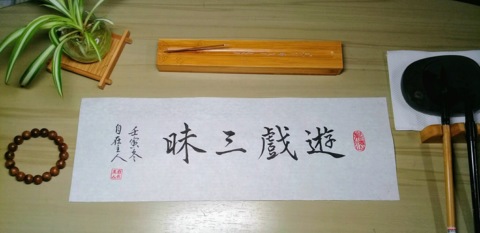 遊戲三昧
壬寅冬
自在主人